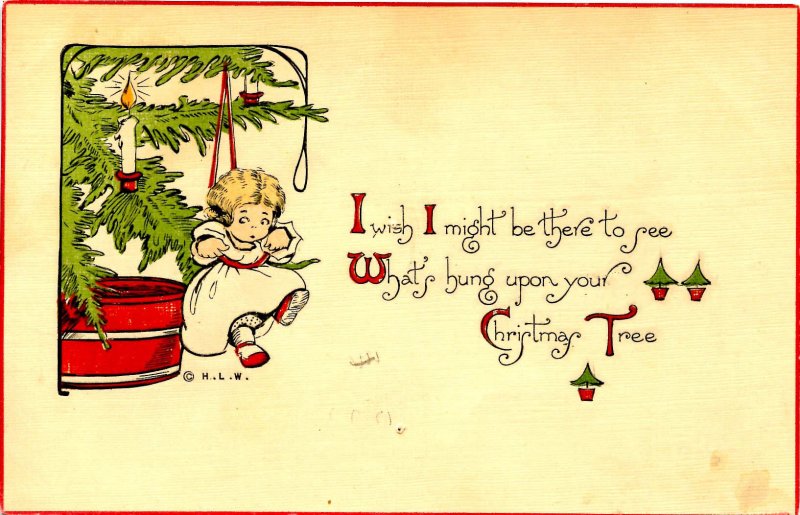 I wish I might be there to see
What's hung upon your
Christmas Tree
© H.L.W.